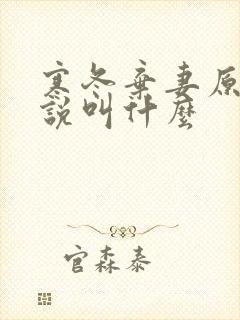 寒冬棄妻原
說叫什麼
官森泰